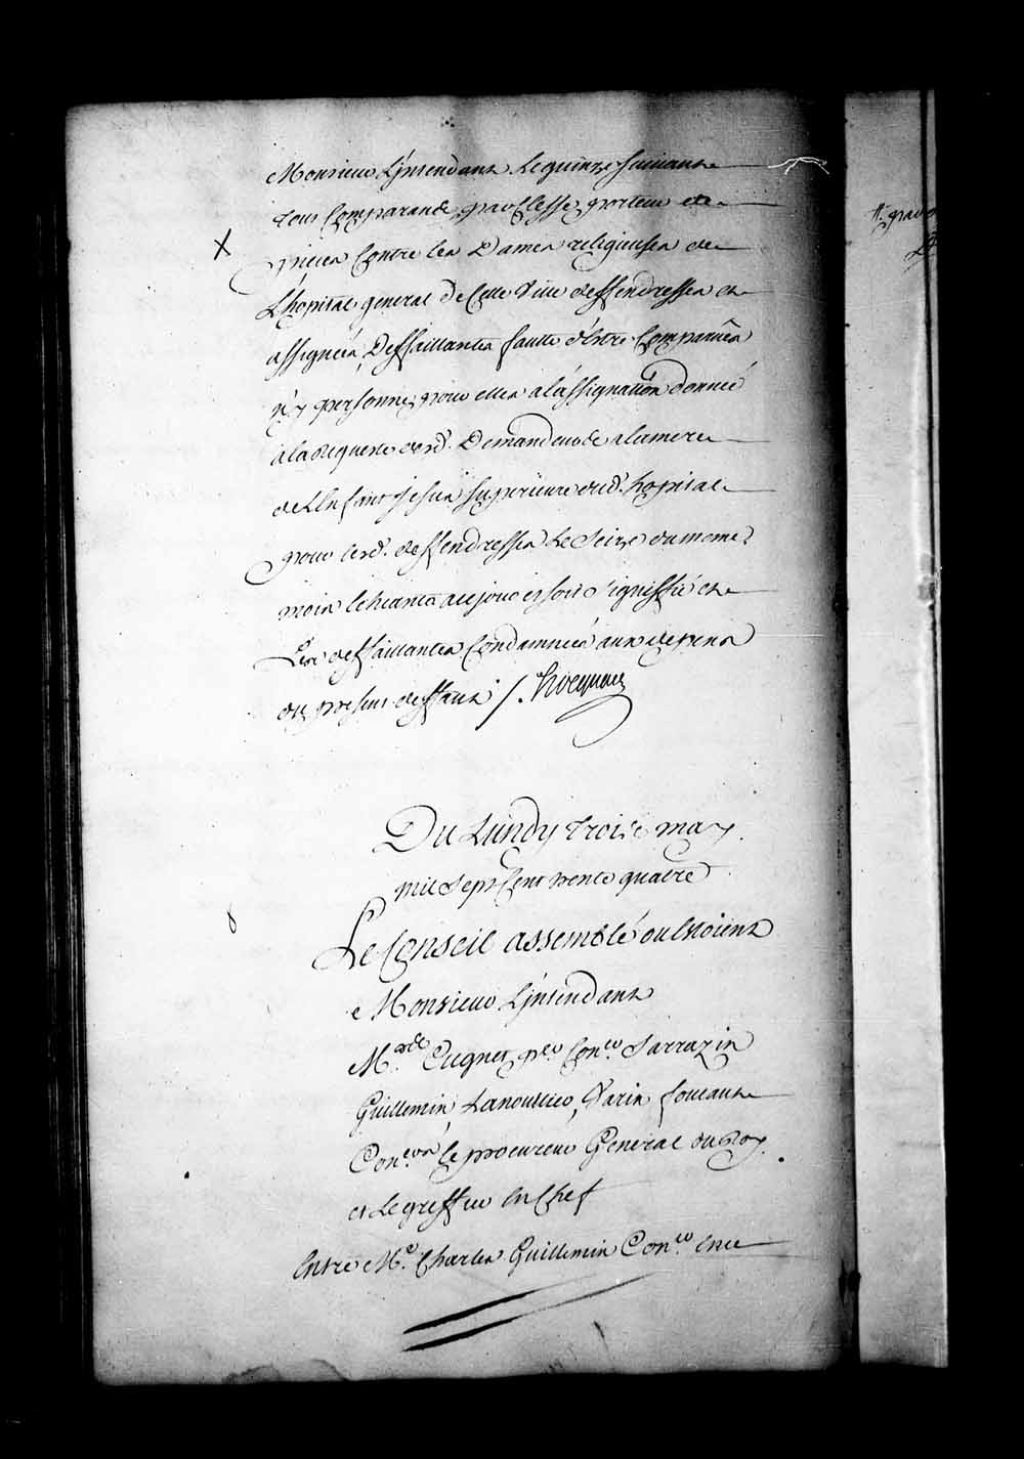 Monsieur L'jntendant Le quinze suivant
tous Comparands par Elesse, porteur de
X
pieces Contre les Dames religieuses de
L'hopital general de Cette Ville deffendresses et
assignées, Deffaillantes fautte d'Estre Comparües
n'y personne pour elles a l'assignation donnée
a la requeste desd. Demandeurs a la mere
de L'Enfant Jesus Superieure dud. hopital
pour lesd. deffendresses Le Seize du meme
mois lesceans au jour soit signiffié et
Les deffaillantes Condamnées aux depens
du present deffaut /. hocquart
Du Lundy trois.e may
mil Sept Cent trente quatre
Le Conseil assemblé ou Estoient
Monsieur L'jntendant
M.rs de Cugnet p.er Con.er Sarrazin
Guillemin, Lanoullier, Varin foucault
Con.ers le procureur General du Roy
et Le greffier En Chef
Entre M.e Charles Guillemin Con.er En ce